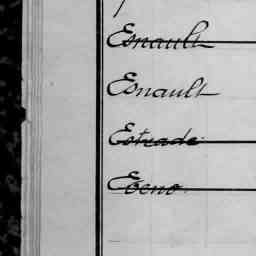 Esnault
Esnault
Estrade